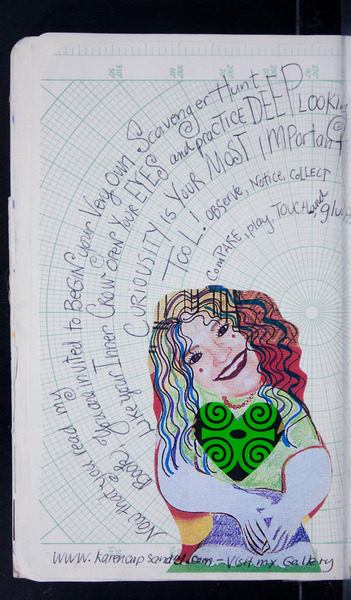 Now that you read my
Book, You are invited to BEGIN your Very Own Scavenger Hunt
Like your Inner Crow - OPEN YOUR EYES and practice DEEP LOOKIN
CURIOUSITY IS YOUR MOST IMPORTANT
TOOL! observe, Notice, COLLECT
COMPARE, play, TOUCH and glue
www.karencap sander.com - Visit my Gallery